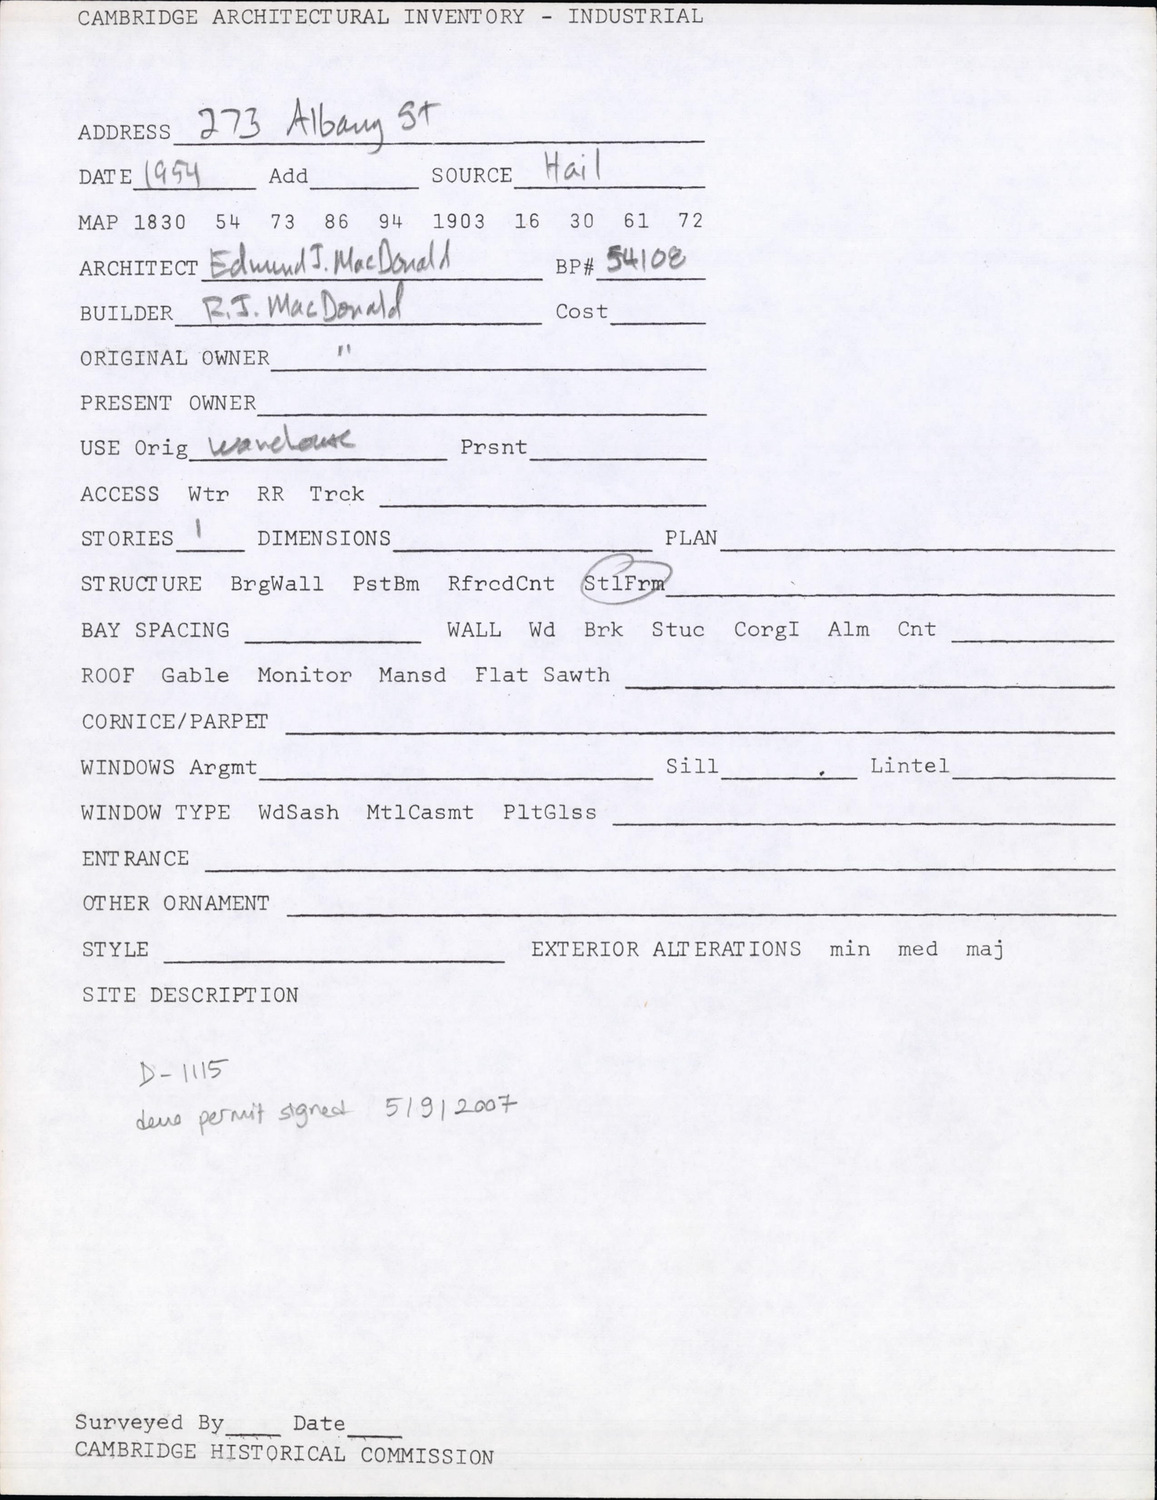 CAMBRIDGE ARCHITECTURAL INVENTORY - INDUSTRIAL
ADDRESS 273 Albany St
DATE 1954 Add SOURCE Hail
MAP 1830 54 73 86 94 1903 16 30 61 72
ARCHITECT Edmund J. MacDonald BP# 54108
BUILDER R.J. MacDonald Cost
ORIGINAL OWNER "
PRESENT OWNER
USE Orig warehouse Prsnt
ACCESS Wtr RR Trck
STORIES 1 DIMENSIONS PLAN
STRUCTURE BrgWall PstBm RfrcdCnt StlFrm
BAY SPACING WALL Wd Brk Stuc CorgI Alm Cnt
ROOF Gable Monitor Mansd Flat Sawth
CORNICE/PARPET
WINDOWS Argmt Sill Lintel
WINDOW TYPE WdSash MtlCasmt PltGlss
ENTRANCE
OTHER ORNAMENT
STYLE EXTERIOR ALTERATIONS min med maj
SITE DESCRIPTION
D-1115
demo permit signed 5/9/2007
Surveyed By Date
CAMBRIDGE HISTORICAL COMMISSION